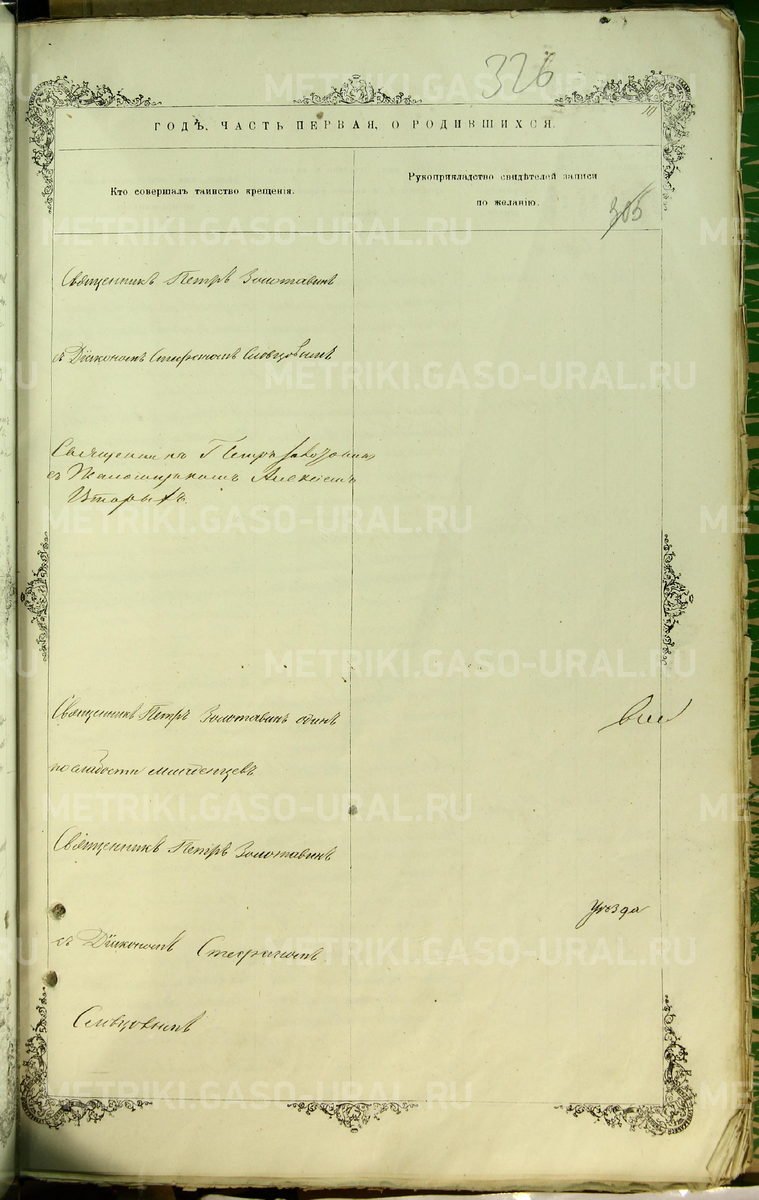 326
19
ГОДЪ, ЧАСТЬ ПЕРВАЯ, О РОДИВШИХСЯ.
Кто совершалъ таинство крещенія.
Рукоприкладство свидѣтелей записи
по желанію.
305
Священникъ Петръ Золотавинъ
съ Діякономъ Стефаномъ Словцовымъ
Священникъ Петръ Золотавинъ
съ Псаломщикомъ Алексіемъ
Священникъ Петръ Золотавинъ одинъ
по слабости младенцевъ
Священникъ Петръ Золотавинъ
съ Діякономъ Стефаномъ
Словцовымъ
уѣзда
METRIKI.GASO-URAL.RU